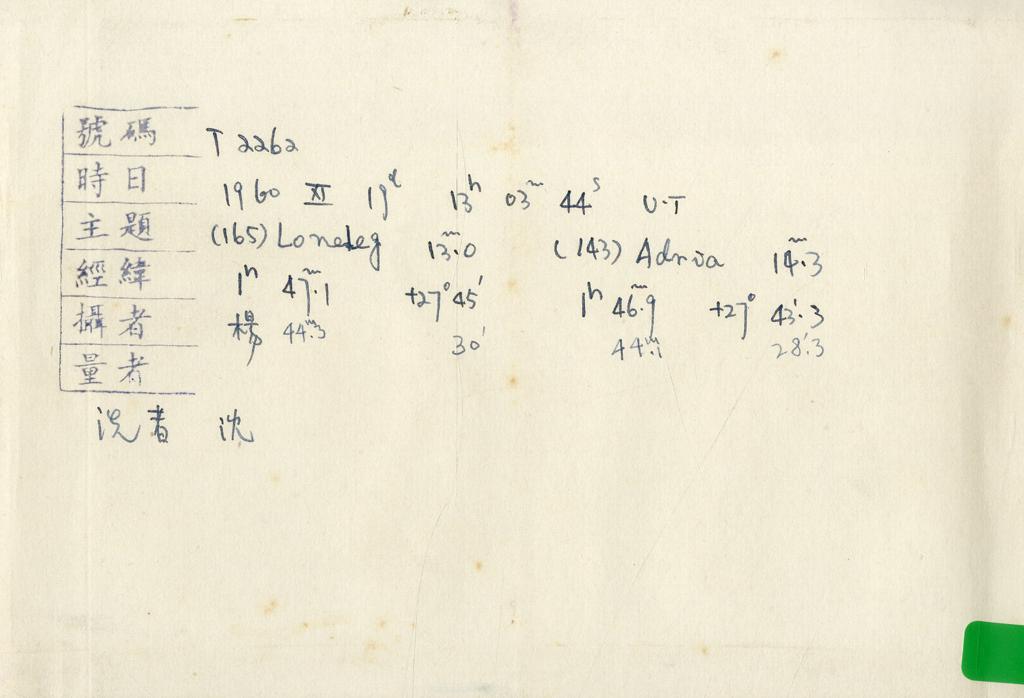 號碼 T 2262
時日 1960 XI 19d 13h 03m 44s U.T
主題 (165) Loreley 13m.0 (143) Adria 14m.3
經緯 1h 47m.1 +27°45′ 1h 46m.9 +27° 43′.3
攝者 楊 44m.3 30′ 44m.1 28′.3
量者
洗者 沈